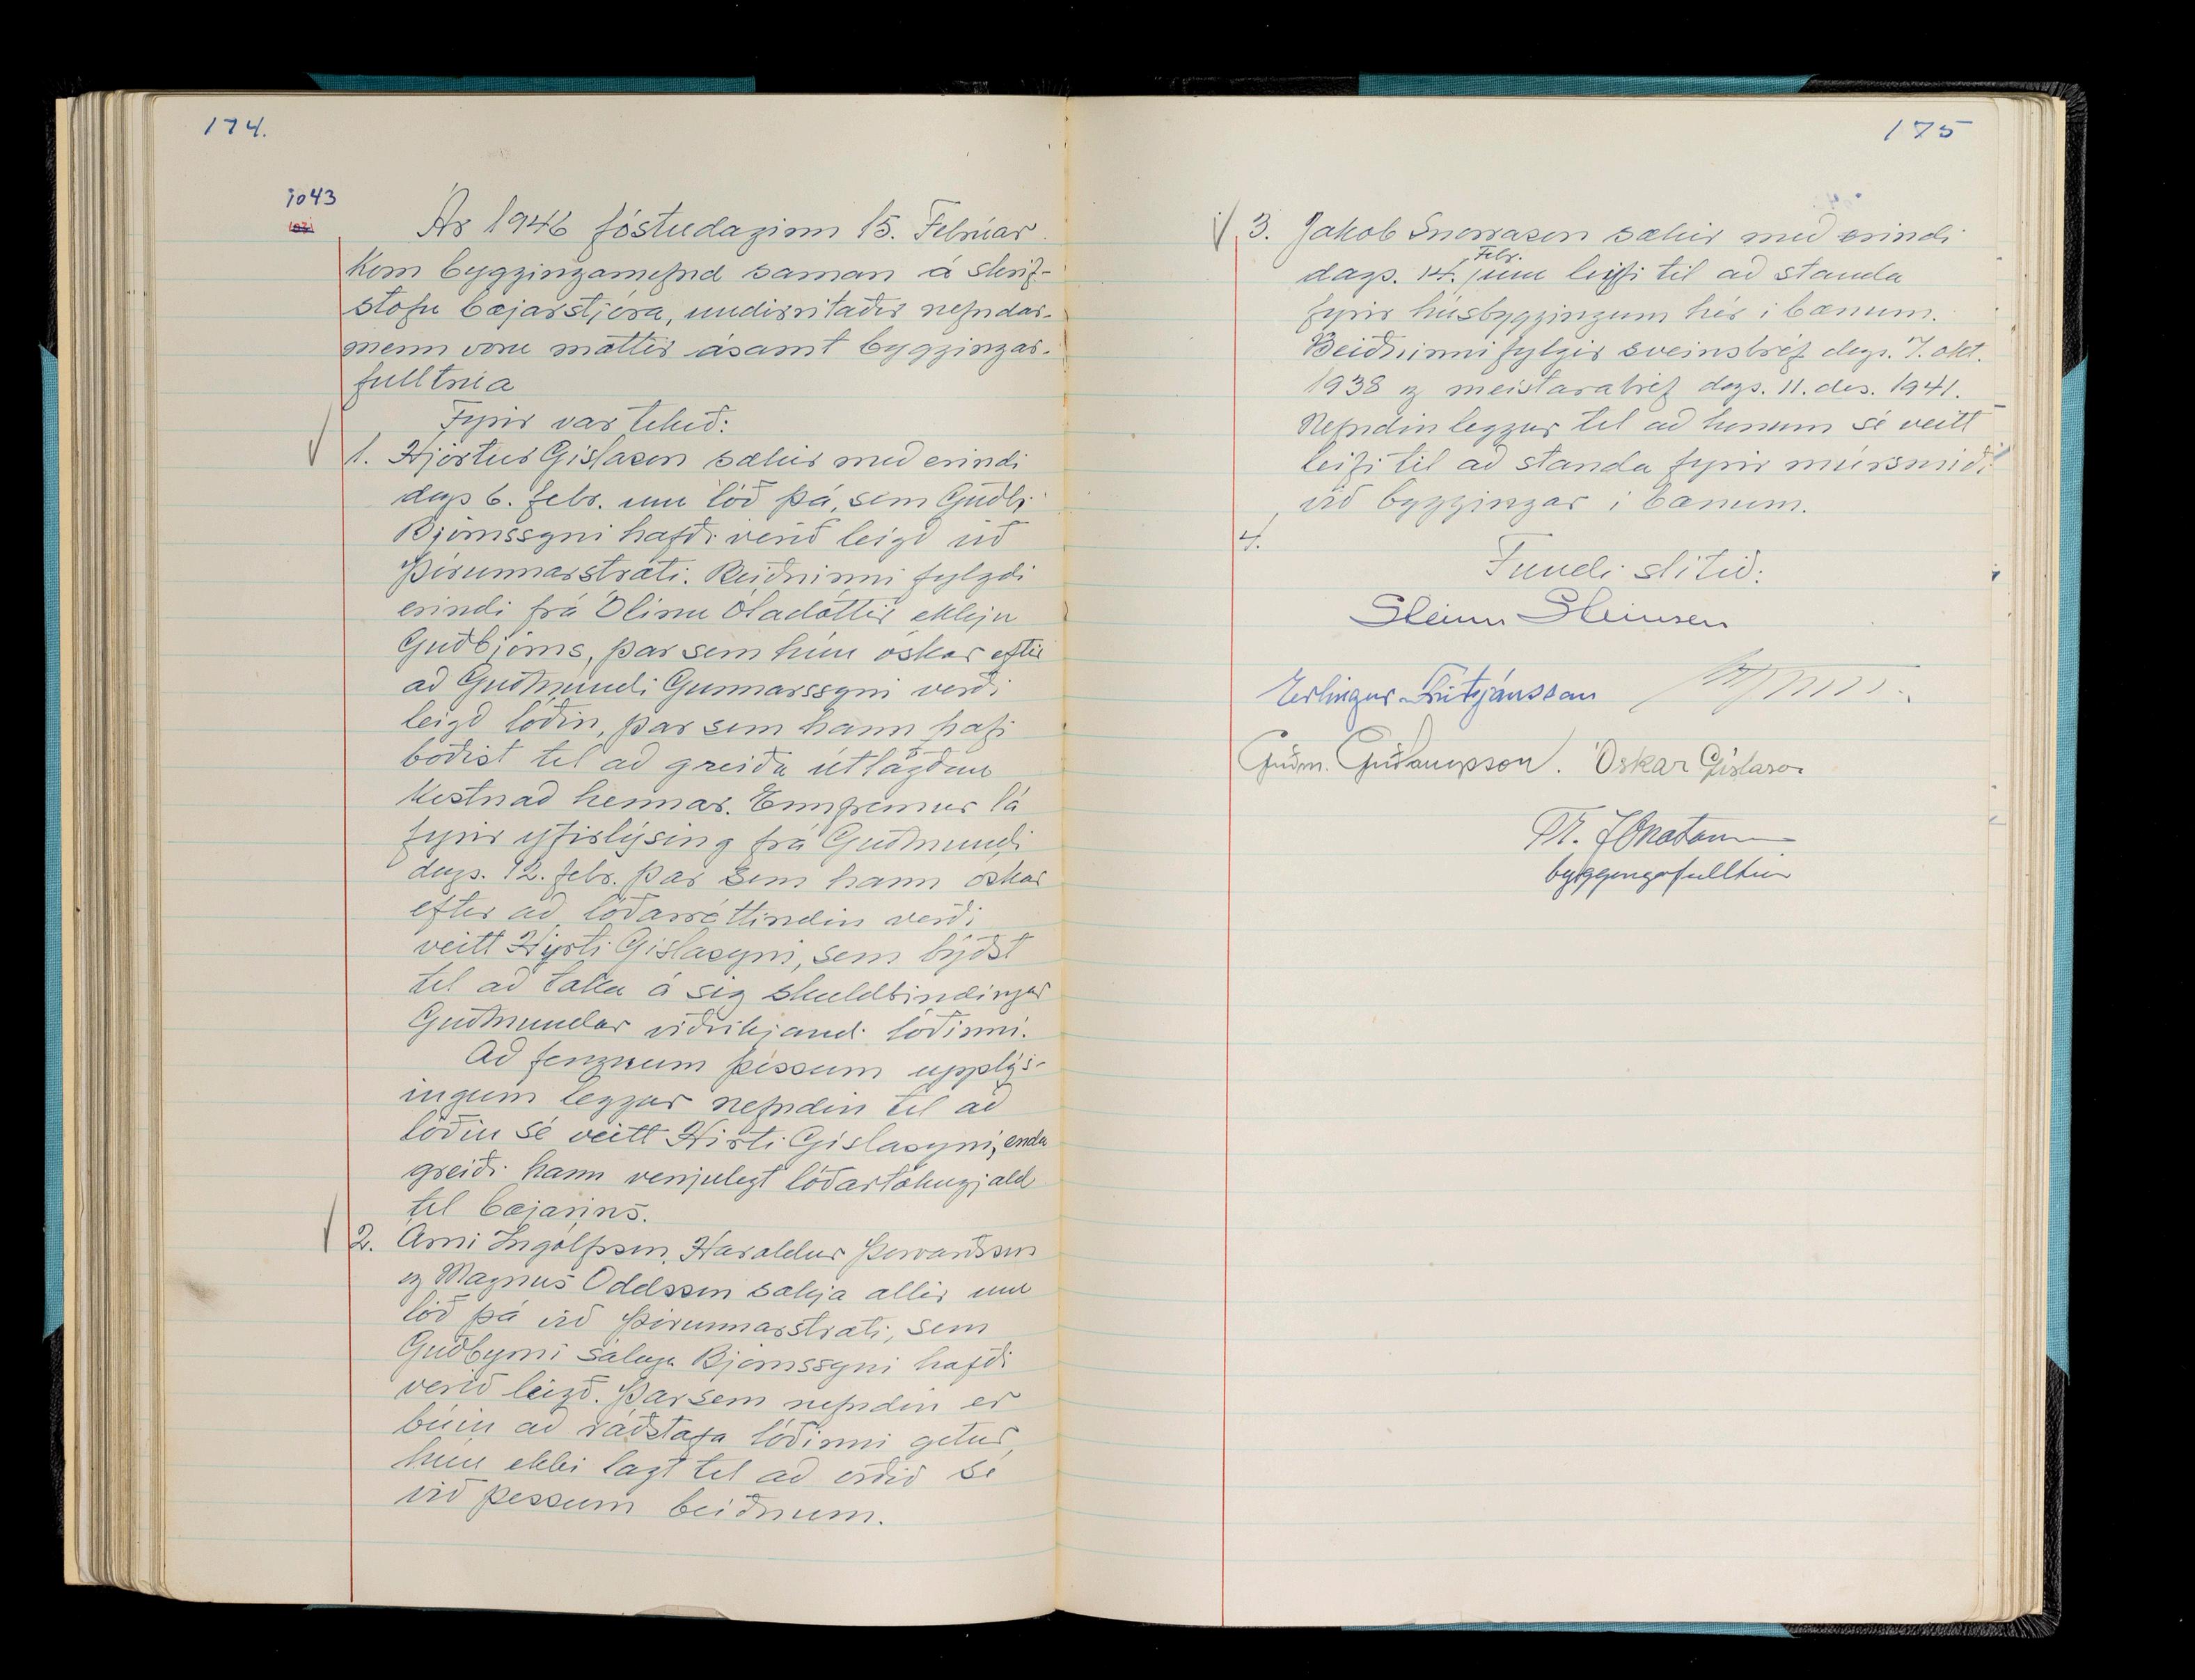 174.
1043
Ár 1946 föstudaginn 15. Febrúar
kom bygginganefnd saman á skrif-
stofu bæjarstjóra, undirritaðir nefndar-
menn voru mættir ásamt byggingar-
fulltrúa
Fyrir var tekið:
1. Hjörtur Gíslason sækir með erindi
dags 6. febr. um lóð þá, sem Guðbj.
Björnssyni hafði verið leigð við
Þórunnarstræti. Beiðninni fylgdi
erindi frá Ólínu Óladóttir ekkju
Guðbjörns, þar sem hún óskar eftir
að Guðmundi Gunnarssyni verði
leigð lóðin, þar sem hann hafi
boðist til að greiða útlagðan
kostnað hennar. Ennfremur lá
fyrir yfirlýsing frá Guðmundi
dags. 12. febr. þar sem hann óskar
eftir að lóðarréttindin verði
veitt Hirti Gíslasyni, sem býðst
til að taka á sig skuldbindingar
Guðmundar viðvíkjandi lóðinni.
Að fengnum þessum upplýs-
ingum leggur nefndin til að
lóðin sé veitt Hirti Gíslasyni, enda
greiði hann venjulegt lóðartökugjald
til bæjarins.
2. Árni Ingólfsson, Haraldur Þorvarðsson
og Magnús Oddsson sækja allir um
lóð þá við Þórunnarstræti, sem
Guðbirni sáluga Björnssyni hafði
verið leigð. Þar sem nefndin er
búin að ráðstafa lóðinni getur
hún ekki lagt til að orðið sé
við þessum beiðnum.
175
3. Jakob Snorrason sækir með erindi
Febr.
dags. 14. / um leyfi til að standa
fyrir húsbyggingum hér í bænum.
Beiðninni fylgir sveinsbréf dags. 7. okt.
1938 og meistarabréf dags. 11. des. 1941.
Nefndin leggur til að honum sé veitt
leifi til að standa fyrir múrsmíði
við byggingar í bænum.
4.
Fundi slitið:
Steinn Steinsen
Erlingur Friðjónsson
Guðm. Guðlaugsson. Óskar Gíslason
byggingafulltrúi